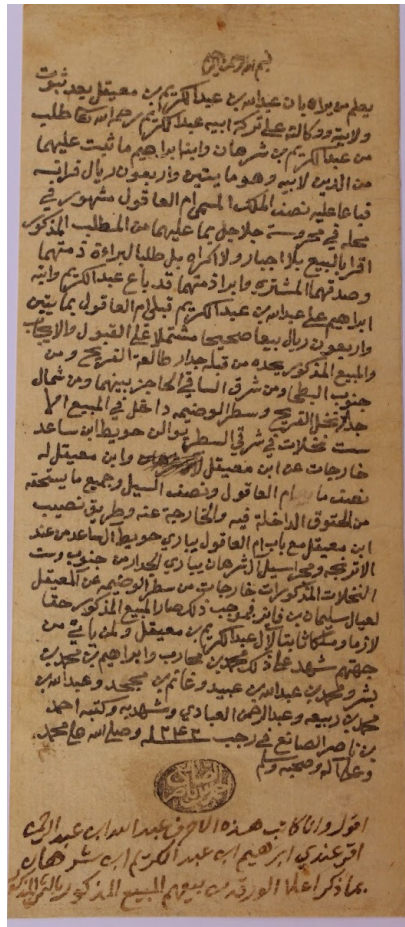 بسم الله الرحمن الرحيم
يعلم من يراه بان عبدالله بن عبدالكريم بن معيقل بعد ثبوت
ولايته ووكالته على تركة ابيه عبدالكريم رحمه الله طلب
من عبدالكريم بن شرهان وابنه ابراهيم ما ثبت عليهما
من الدين لابيه وهو مايتين واربعون ريال فرانسه
فباعا عليه نصف الملك المسمى ام العاقول مشهور في
محله في محروسة جلاجل بما عليهما من المطلب المذكور
اقرا بالبيع بلا اجبار ولا اكراه بل طلبا لبراءة ذمتهما
وصدقهما المشتري وابرا ذمتهما قد باع عبدالكريم وابنه
ابراهيم على عبدالله بن عبدالكريم قبلي ام العاقول بمايتين
واربعون ريال بيعا صحيحا مشتملا على القبول والايجاب
والمبيع المذكور يحده من قبله جدار طالعة الفريح ومن
جنوب البطحا ومن شرق الساقي الحاجز بينهما ومن شمال
نخل الفريح وسطر الوضيمه داخل في المبيع الا
ست نخلات في شرقي السطر يوالن حويط ابن ساعد
خارجات عن ابن معيقل وابن معيقل له
نصف ام العاقول ونصف السيل وجميع ما يستحقه
من الحقوق الداخلة فيه والخارجة عنه وطريق نصيب
ابن معيقل مع باب ام العاقول يباري حويط الساعد من عند
ومجرا سيل الشرهان يباري الجدار من جنوب وست
النخلات المذكورات خارجات من سطر الوضيمه عن المعيقل
لعيال سليمان بن فايز فبموجب ذلك صار المبيع المذكور حقا
لازما وملكا ثابتا لال عبدالكريم بن معيقل ولمن ياتي من
جهتهم شهد على ذلك محمد بن محارب وابراهيم بن محمد بن
بشر ومحمد بن عبدالله بن عبيد وغانم بن وعبدالله بن
محمد بن ربيعه وعبدالرحمن العبادي وشهد به وكتبه احمد
بن ناصر الصانع في رجب ١٢٤٣ وصلى الله على محمد
وعلى اله وصحبه وسلم
اقول وانا كاتب هذه الاحرف عبدالله ابن عبدالرحمن
اقر عندي ابرهيم ابن عبدالكريم ابن شرهان
بما ذكر اعلا الورقه من بيعهم المبيع المذكور بالثمن المذكور